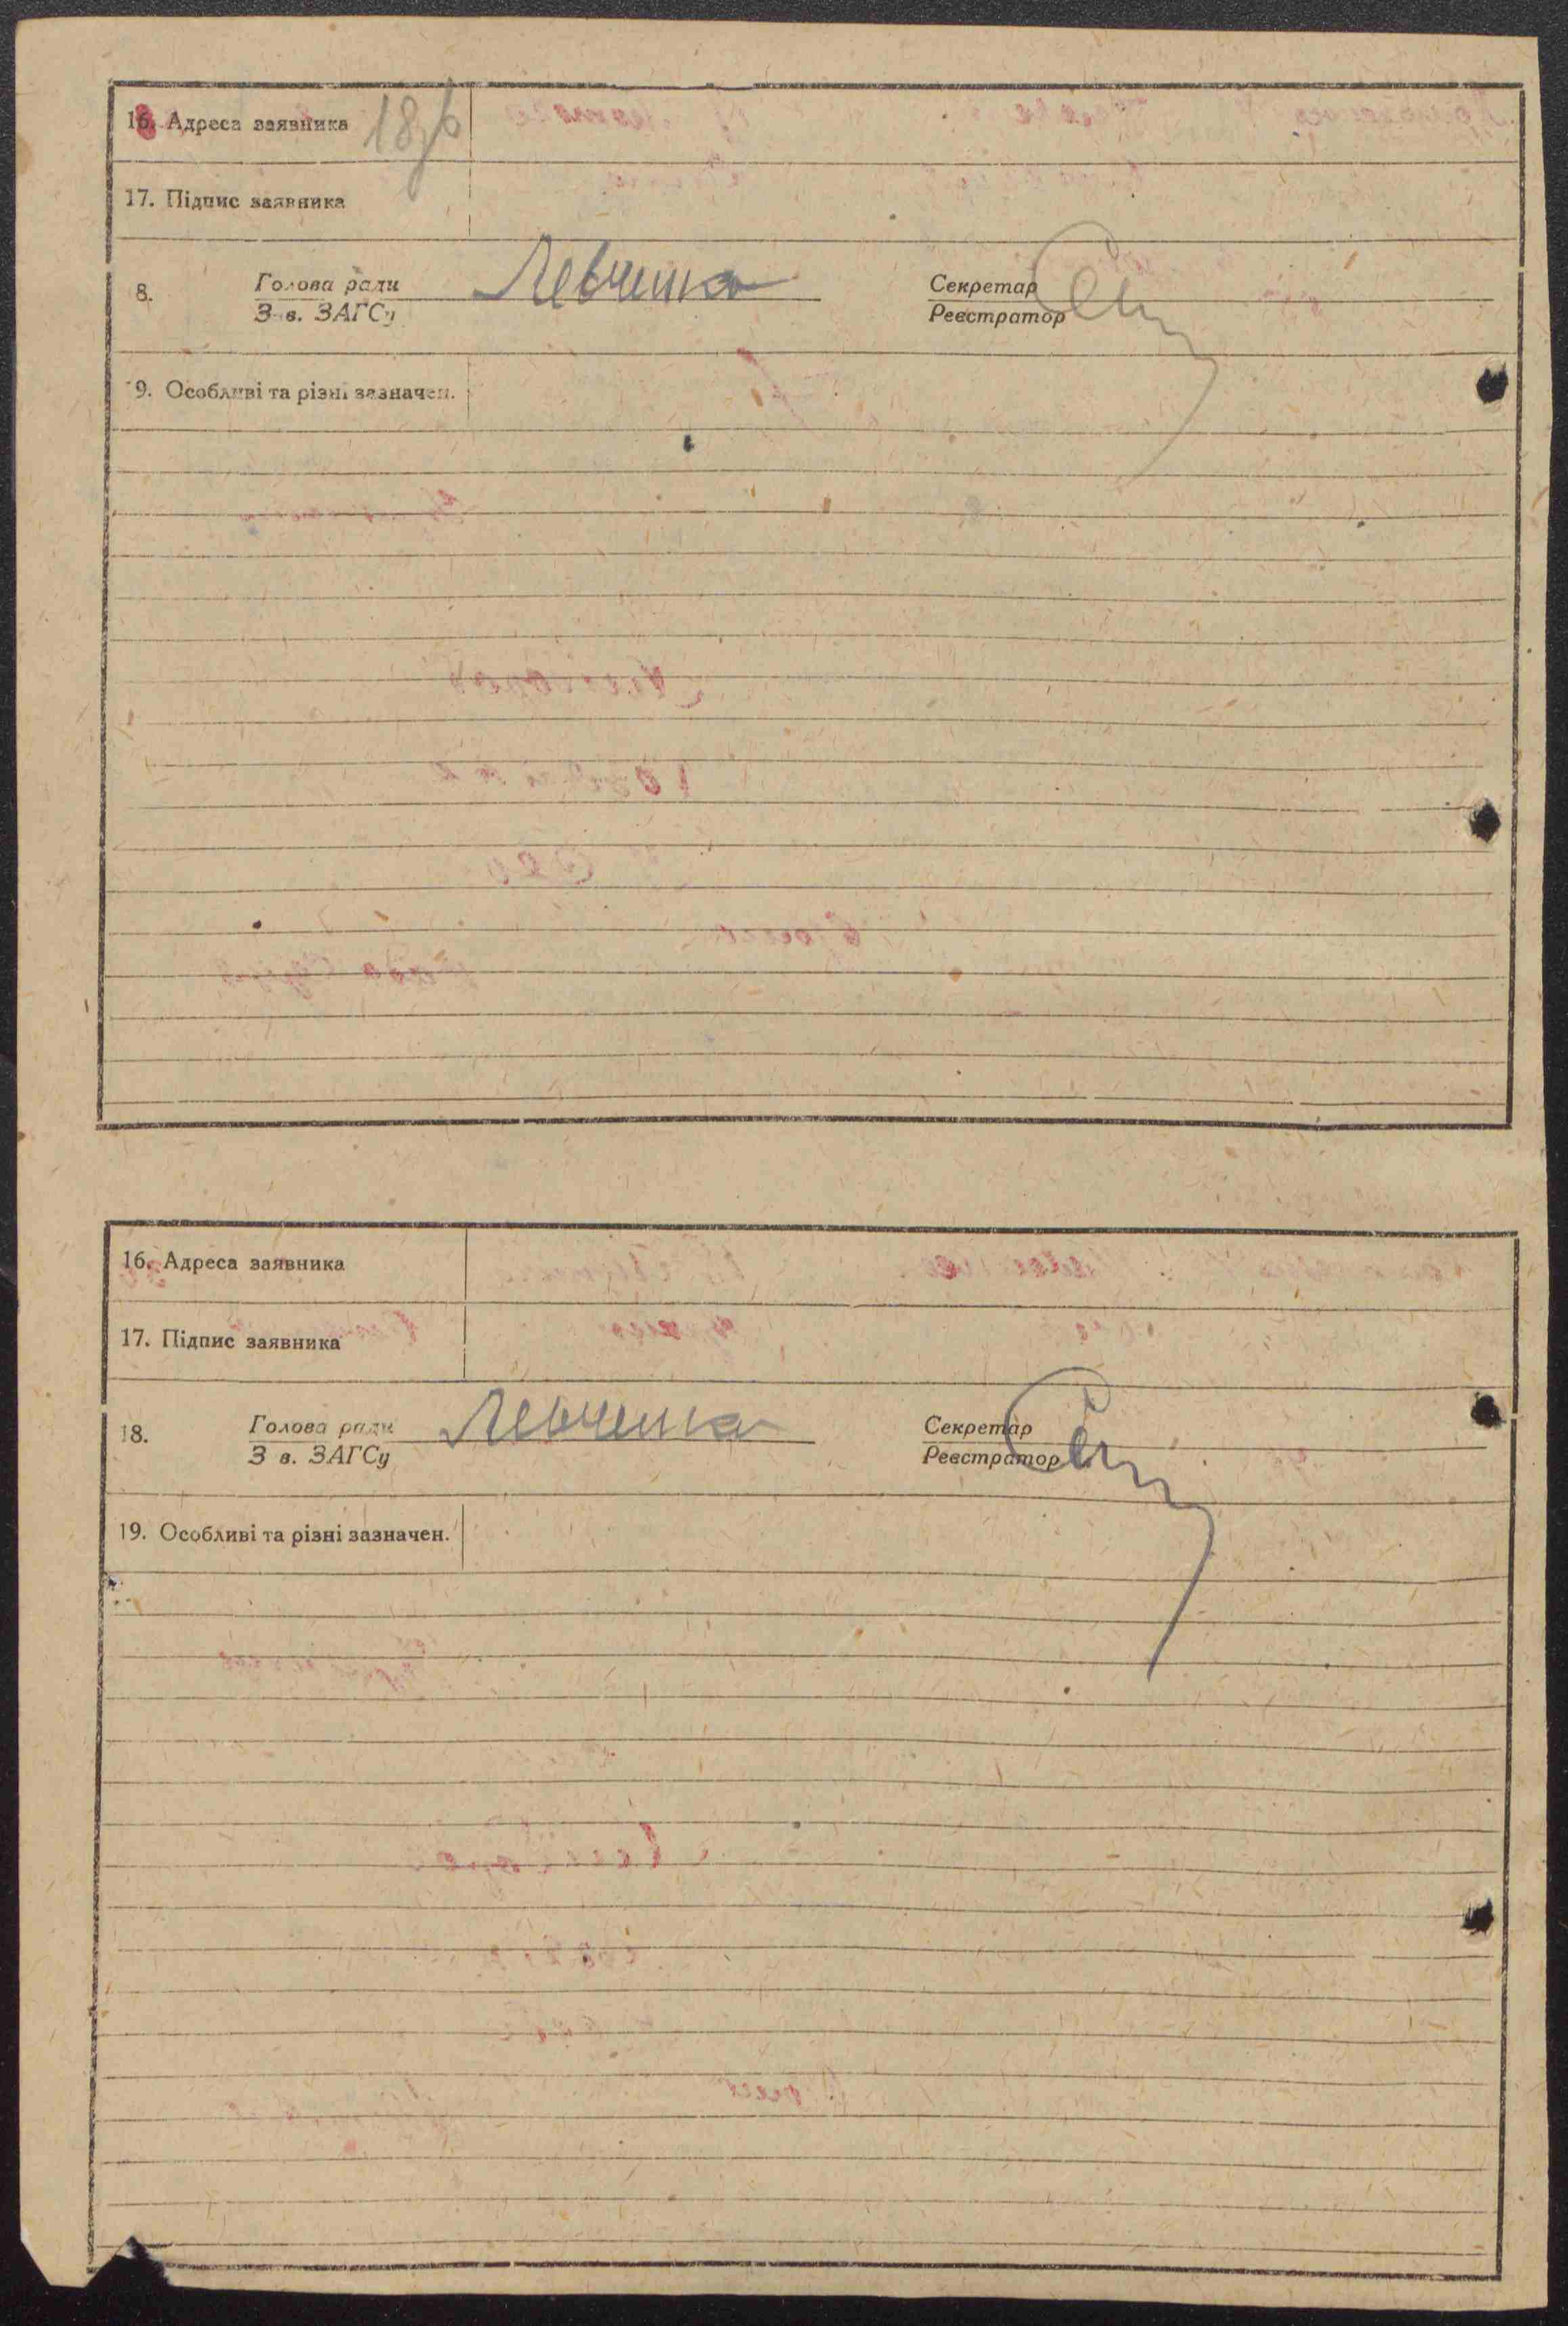 16. Адреса заявника
17. Підпис заявника
8. Голова ради Левченко Секретар
Зав. ЗАГСу Реєстратор
19. Особливі та різні зазначен.
16. Адреса заявника
17. Підпис заявника
18. Голова ради Левченко Секретар
Зав. ЗАГСу Реєстратор
19. Особливі та різні зазначен.